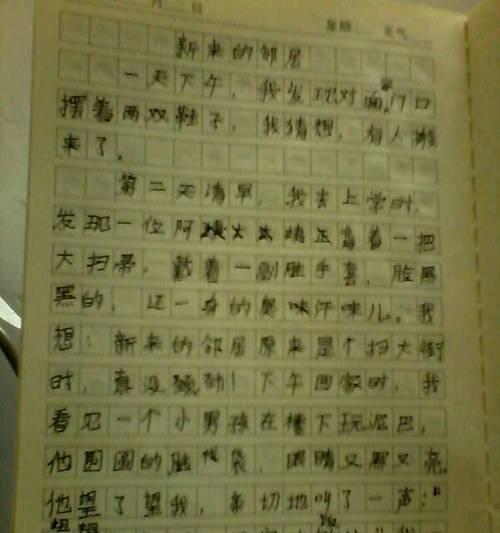 月 日 星期 天气
新来的邻居
一天下午，我发现对面家门口
摆着两双鞋子，我猜想，有人搬
来了。
第二天清早，我去上学时，
发现一位阿姨正拿着一把
大扫帚，戴着一副脏手套，脸黑
黑的，还一身的臭味汗味儿。我
想：新来的邻居原来是个扫大街
时，真没劲！下午回家时，我
看见一个小男孩在楼下玩泥巴，
他圆圆的脑袋，眼睛又黑又亮，
他望了望我，亲切地叫了一声：“